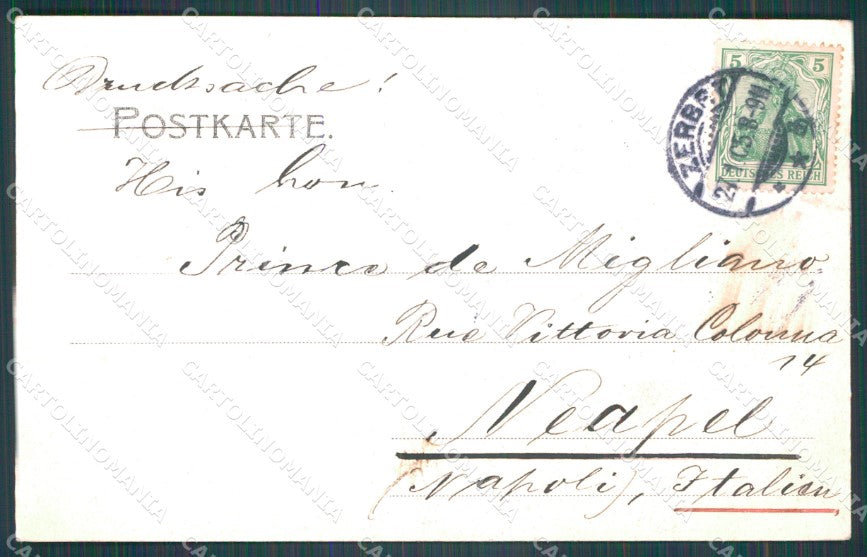 Drucksache!
POSTKARTE.
His hon.
Prince de Migliano
Rue Vittoria Colonna
14
Neapel
(Napoli), Italien
5 5
DEUTSCHES REICH
ZERBST
CARTOLINOMANIA